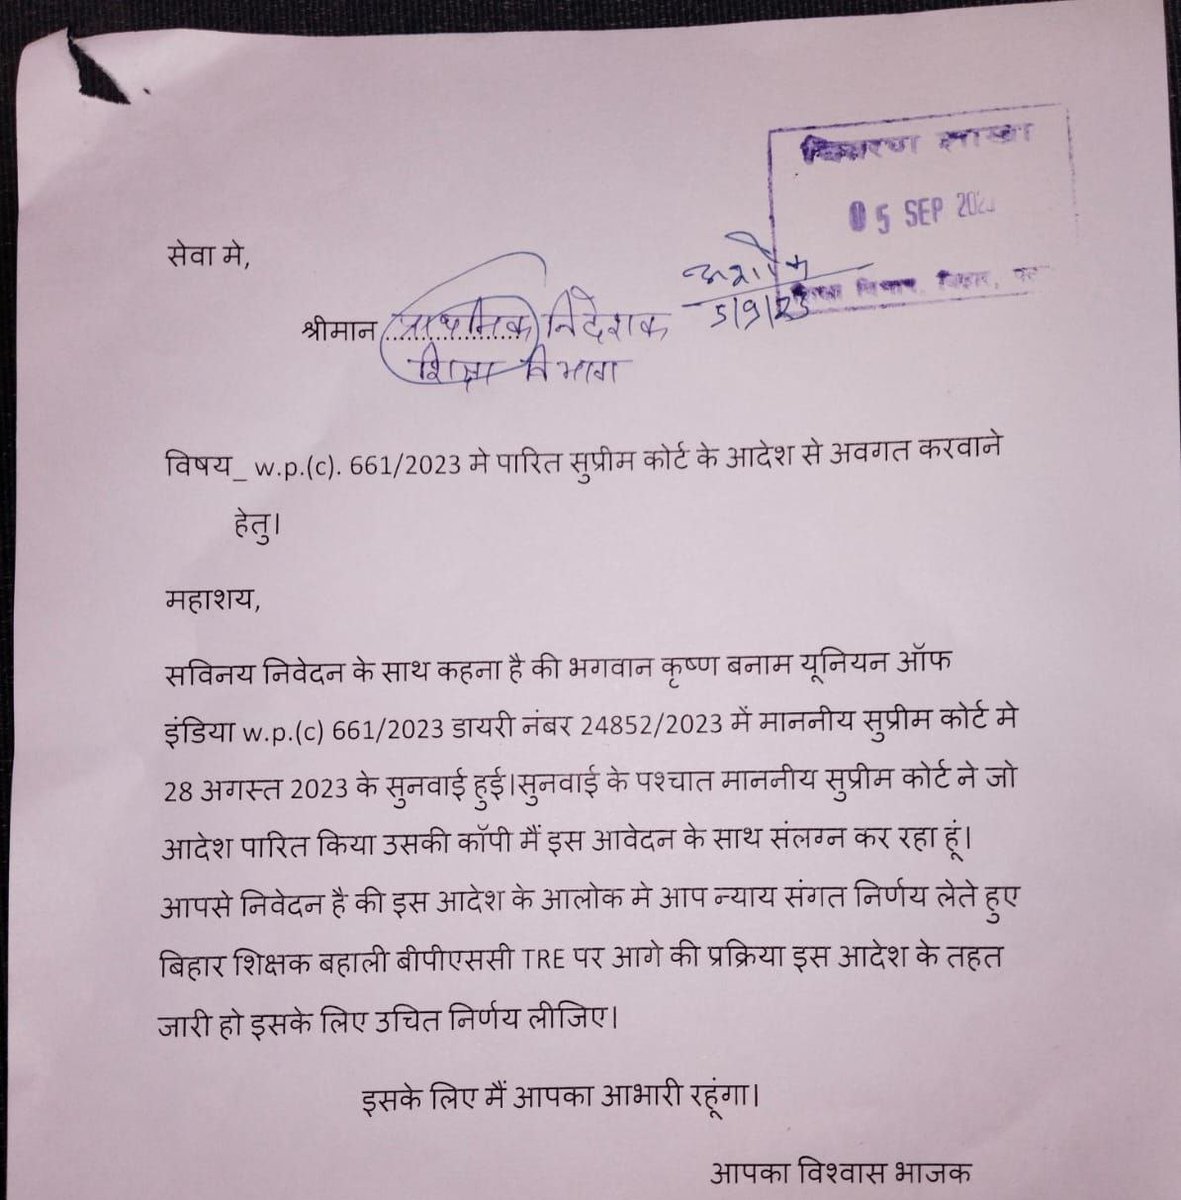 शाखा
05 SEP
सेवा मे,
श्रीमान प्राथमिक निदेशक
5/9/23
शिक्षा विभाग
विषय_ w.p.(c). 661/2023 मे पारित सुप्रीम कोर्ट के आदेश से अवगत करवाने
हेतु।
महाशय,
सविनय निवेदन के साथ कहना है की भगवान कृष्ण बनाम यूनियन ऑफ
इंडिया w.p.(c) 661/2023 डायरी नंबर 24852/2023 में माननीय सुप्रीम कोर्ट मे
28 अगस्त 2023 के सुनवाई हुई।सुनवाई के पश्चात माननीय सुप्रीम कोर्ट ने जो
आदेश पारित किया उसकी कॉपी मैं इस आवेदन के साथ संलग्न कर रहा हूं।
आपसे निवेदन है की इस आदेश के आलोक मे आप न्याय संगत निर्णय लेते हुए
बिहार शिक्षक बहाली बीपीएससी TRE पर आगे की प्रक्रिया इस आदेश के तहत
जारी हो इसके लिए उचित निर्णय लीजिए।
इसके लिए मैं आपका आभारी रहूंगा।
आपका विश्वास भाजक